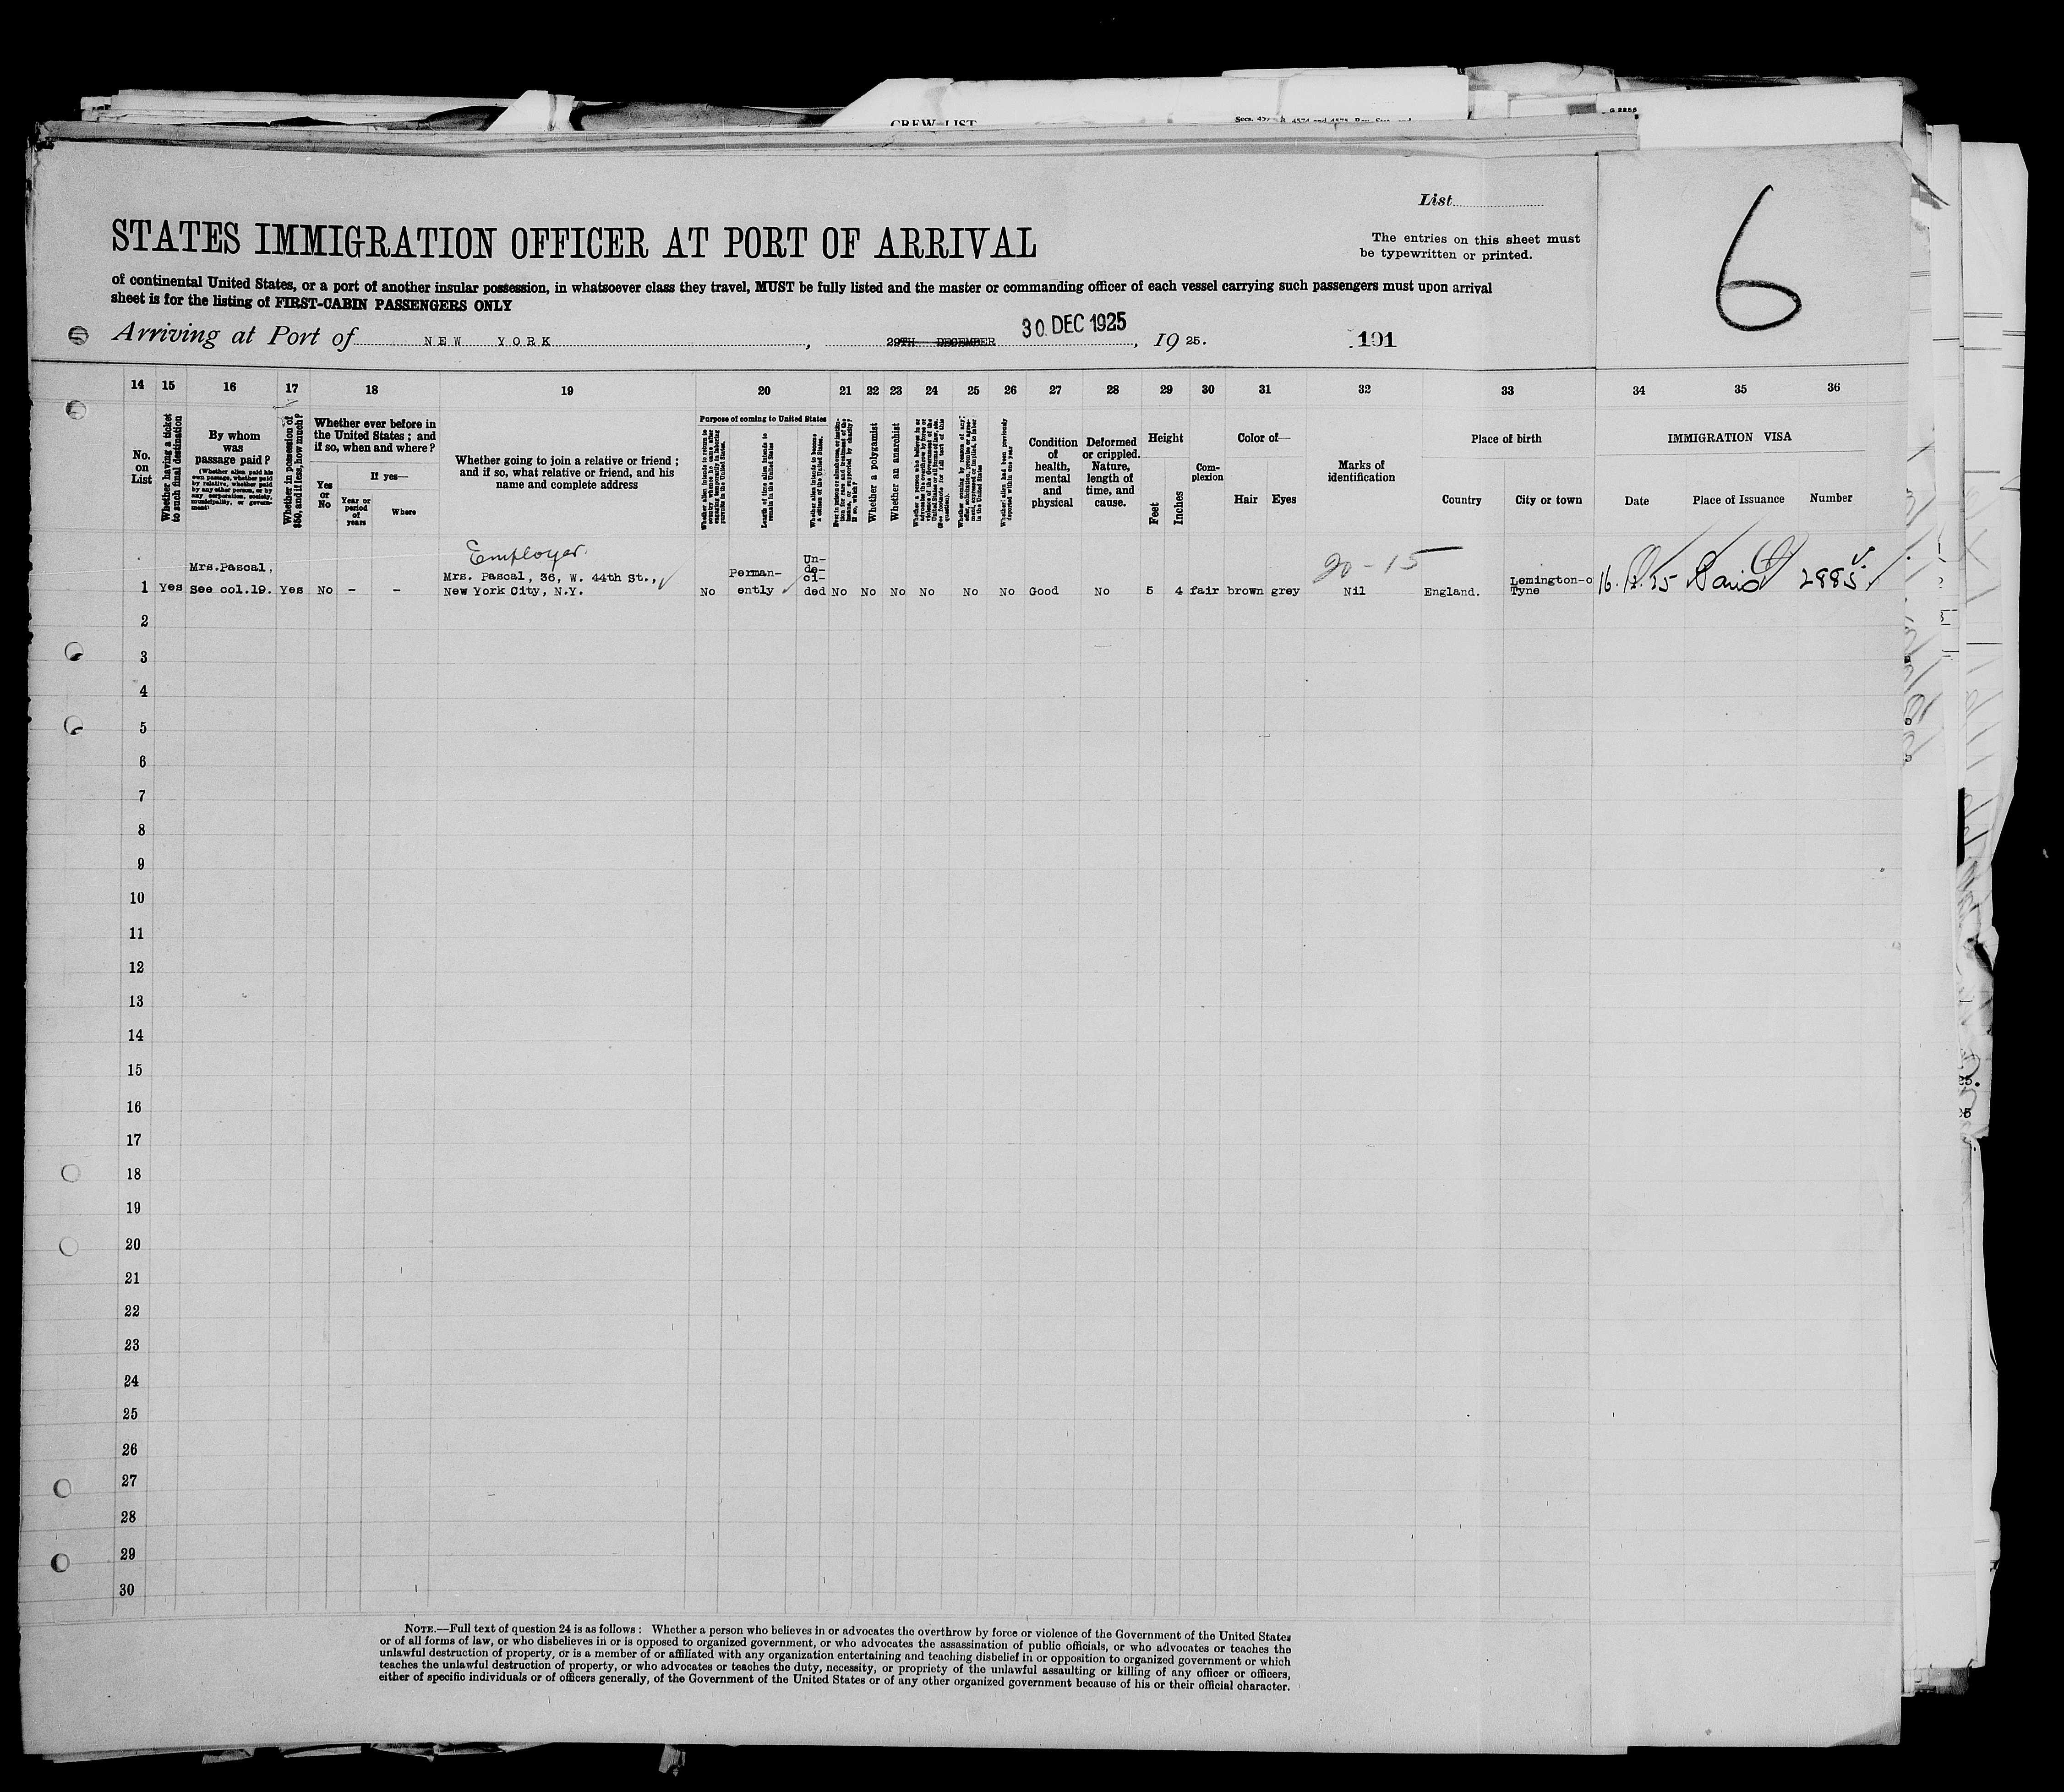 CREW LIST
List
6
STATES IMMIGRATION OFFICER AT PORT OF ARRIVAL
The entries on this sheet must
be typewritten or printed.
of continental United States, or a port of another insular possession, in whatsoever class they travel, MUST be fully listed and the master or commanding officer of each vessel carrying such passengers must upon arrival
sheet is for the listing of FIRST-CABIN PASSENGERS ONLY
Arriving at Port of NEW YORK, 29TH DECEMBER 30 DEC 1925, 19 25. 191
14 15 16 17 18 19 20 21 22 23 24 25 26 27 28 29 30 31 32 33 34 35 36
No.
on
List
Whether having a ticket
to such final destination
By whom
was
passage paid?
(Whether alien paid his
own passage, whether paid
by relative, whether paid
by any other person, or by
any corporation, society,
municipality, or govern-
ment)
Whether in possession of
$50, and if less, how much?
Whether ever before in
the United States; and
if so, when and where?
Yes
or
No
If yes—
Year or
period
of
years
Where
Whether going to join a relative or friend;
and if so, what relative or friend, and his
name and complete address
Purpose of coming to United States
Length of time alien intends to
remain in the United States
Whether alien intends to become
a citizen of the United States.
Whether a polygamist
Whether an anarchist
Whether alien had been previously
deported within one year
Condition
of
health,
mental
and
physical
Deformed
or crippled.
Nature,
length of
time, and
cause.
Height
Feet
Inches
Com-
plexion
Color of—
Hair Eyes
Marks of
identification
Place of birth
Country City or town
IMMIGRATION VISA
Date Place of Issuance Number
1 Yes Mrs.Pascal,
See col.19. Yes No - -
Employer.
Mrs. Pascal, 36, W. 44th St.,
New York City, N.Y.
No Perman-
ently
Un-
de-
ci-
ded
No No No No No No Good No 5 4 fair brown grey
20-15
Nil England. Lemington-o
Tyne
2885
2
3
4
5
6
7
8
9
10
11
12
13
14
15
16
17
18
19
20
21
22
23
24
25
26
27
28
29
30
NOTE.—Full text of question 24 is as follows: Whether a person who believes in or advocates the overthrow by force or violence of the Government of the United States
or of all forms of law, or who disbelieves in or is opposed to organized government, or who advocates the assassination of public officials, or who advocates or teaches the
unlawful destruction of property, or is a member of or affiliated with any organization entertaining and teaching disbelief in or opposition to organized government or which
teaches the unlawful destruction of property, or who advocates or teaches the duty, necessity, or propriety of the unlawful assaulting or killing of any officer or officers,
either of specific individuals or of officers generally, of the Government of the United States or of any other organized government because of his or their official character.